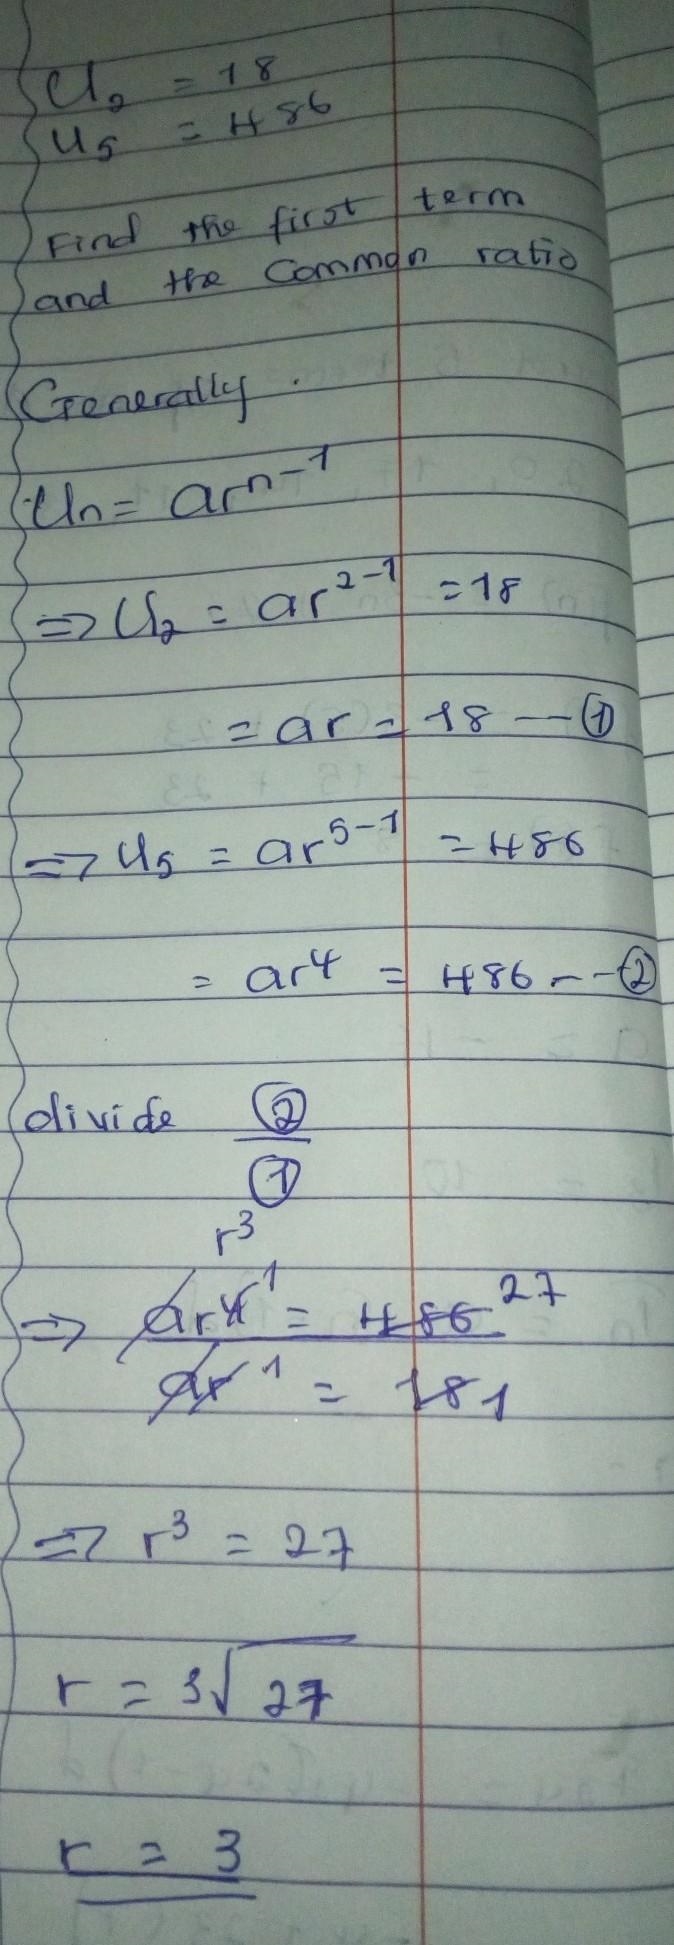 U₂ = 18
U₅ = 486
Find the first term
and the common ratio
Generally.
Uₙ = arⁿ⁻¹
⇒ U₂ = ar²⁻¹ = 18
= ar = 18 — ①
⇒ U₅ = ar⁵⁻¹ = 486
= ar⁴ = 486 -- ②
divide ②
①
r³
⇒ ar⁴ ¹ = 486 27
ar ¹ = 18 1
⇒ r³ = 27
r = ³√27
r = 3